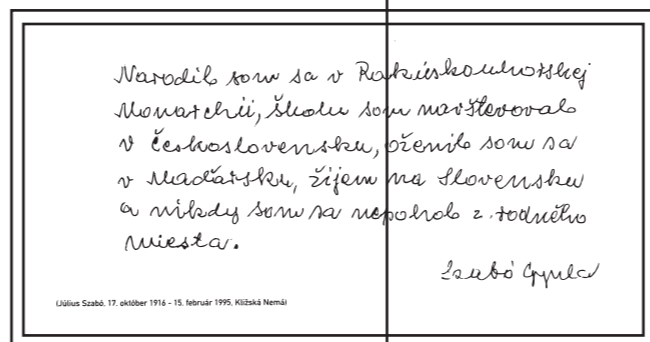 Narodil som sa v Rakúskouhorskej
Monarchii, školu som navštevoval
v Československu, oženil som sa
v Maďarsku, žijem na Slovensku
a nikdy som sa nepohol z rodného
miesta.
Szabó Gyula
(Július Szabó, 17. október 1916 - 15. február 1995, Kližská Nemá)